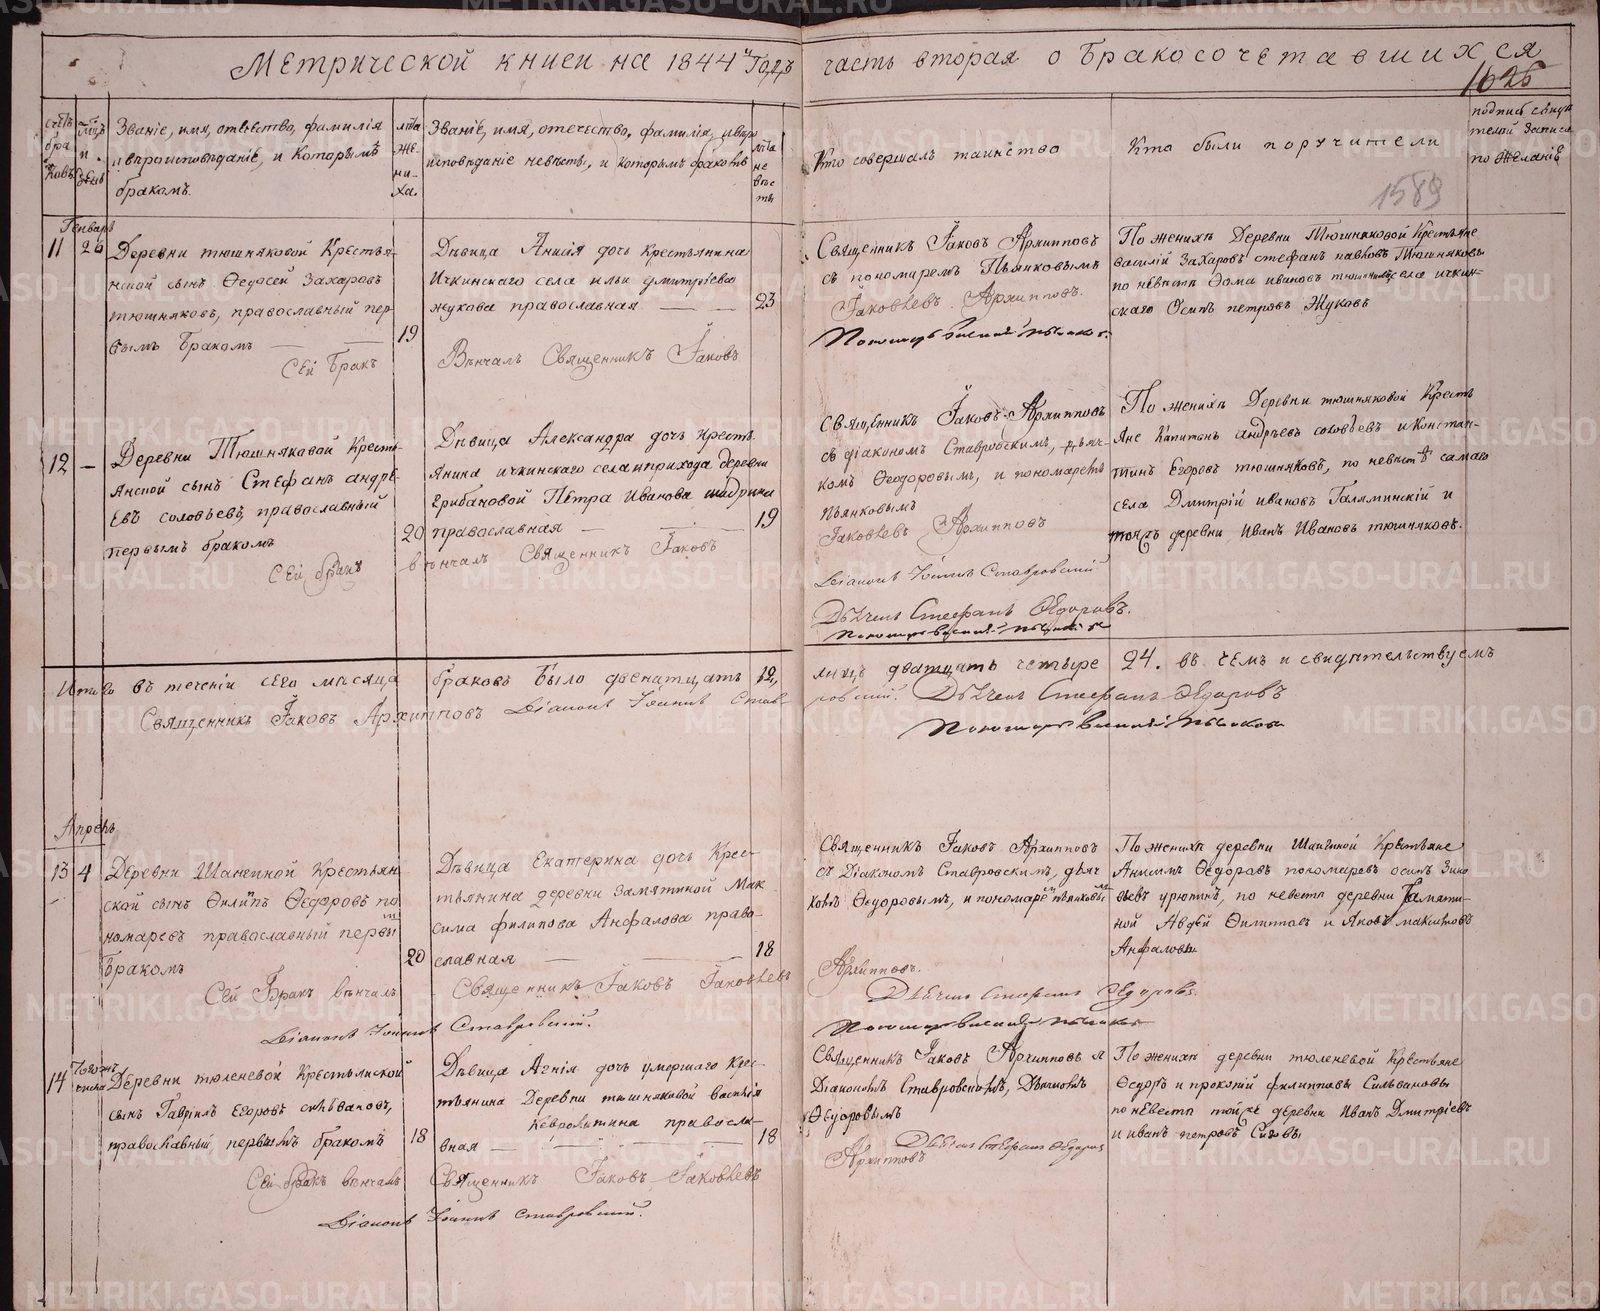 Метрической книги на 1844й Годъ часть вторая о бракосочетавшихся
1626
1589
счетъ бра ковъ
мцъ и день
Званіе, имя, отчество, фамилія
и вѣроисповѣданіе, и которымъ
бракомъ.
лѣта же-ни-ха.
Званіе, имя, отечество, фамилія, и вѣро
исповѣданіе невѣсты, и которымъ бракомъ
лѣта не вѣс ты
Кто совершалъ таинство
Кто были поручители
подпись свидѣ
телей записи
по желанію
Генварь
11 26
Деревни тюшняковой Крестья-
нской сынъ Ѳеодосей Захаровъ
тюшняковъ, православный пер-
вымъ бракомъ
19
Сей бракъ
Дѣвица Анисія дочь крестьянина
Ичкинскаго села ильи дмитріева
жукова православная
23
Вѣнчалъ Священникъ Іаковъ
Священникъ Іаковъ Архипповъ
съ пономаремъ Пьянковымъ
Іаковлевъ Архипповъ.
Пономарь Василий Пьянковъ.
По женихѣ Деревни Тюшняковой Крестьяне
василій Захаровъ стефанъ павловъ Тюшняковы
по невѣстѣ Фома ивановъ тюшняковъ села ичкин-
скаго Осипъ петровъ Жуковъ
12 —
Деревни Тюшняковой Кресть-
янской сынъ Стефанъ андре-
евъ соловьевъ, православный
первымъ бракомъ
20
Сей бракъ
Дѣвица Александра дочь кресть
янина ичкинскаго села прихода деревни
грибановой Петра Иванова шадрина
православная
19
вѣнчалъ Священникъ Іаковъ
Священникъ Іаковъ Архипповъ
съ діакономъ Ставровскимъ, дьяч-
комъ Ѳеодоровымъ, и пономаремъ
Пьянковымъ
Іаковлевъ Архипповъ
Діаконъ Іоаннъ Ставровскій
Дьячекъ Стефанъ Ѳедоровъ.
Пономарь Василий Пьянковъ
По женихѣ Деревни тюшняковой Кресть
яне Капитонъ андреевъ соловьевъ и Констан-
тинъ Егоровъ тюшняковъ, по невѣстѣ самаго
села Дмитрій ивановъ Галяминскій и
тояжъ деревни Иванъ Ивановъ тюшняковъ.
Итого въ теченіи сего мѣсяца браковъ было двенатцать 12, лицъ дватцать четыре 24. въ чемъ и свидѣтельствуемъ
Священникъ Іаковъ Архипповъ Діаконъ Іоаннъ Став-ровский. Дьячекъ Стефанъ Ѳедоровъ
Пономарь Василий Пьянковъ
Апрель
13 4
Деревни Шанской Крестьян
ской сынъ Филипъ Ѳедоровъ по
номаревъ православный первы
бракомъ
20
Сей бракъ вѣнчалъ
Дѣвица Екатерина дочь Крес-
тьянина деревни замятиной Мак
сима филипова Анфалова право-
славная
18
Священникъ Іаковъ Іаковлевъ
Діаконъ Іоаннъ Ставровский.
Священникъ Іаковъ Архипповъ
съ Діакономъ Ставровскимъ, дьяч
комъ Ѳедоровымъ, и пономаремъ пьянковымъ
Архипповъ.
Дьячекъ Стефанъ Ѳедоровъ.
Пономарь Василий Пьянковъ
По женихѣ деревни Крестьяне
Анисимъ Ѳедоровъ пономаревъ осипъ Зино
вьевъ урютинъ, по невестѣ деревни Замяти-
ной Авдѣй Филиповъ и Яковъ макимовъ
Анфаловы
14
Того же числа
Деревни тюленевой Крестьянской
сынъ Гаврилъ Егоровъ силвановъ,
православный первымъ бракомъ
18
Сей бракъ вѣнчалъ
Дѣвица Агнія дочь умершаго Крес-
тьянина Деревни тюшняковой василія
невролитина правосла-
вная
18
Священникъ Іаковъ Іаковлевъ
Діаконъ Іоаннъ Ставровский.
Священникъ Іаковъ Архипповъ я
Діакономъ Ставровскимъ, Дьячкомъ
Ѳедоровымъ
Дьячекъ Стефанъ Ѳедоровъ
Архипповъ
По женихѣ деревни тюленевой Крестьяне
Ѳедоръ и прокопій филипповы Силвановы
по невестѣ той же деревни Иванъ Дмитріевъ
и иванъ петровъ
METRIKI.GASO-URAL.RU